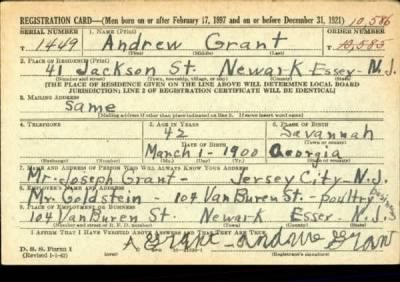 REGISTRATION CARD—(Men born on or after February 17, 1897 and on or before December 31, 1921) 10,586
SERIAL NUMBER 1. NAME (Print) ORDER NUMBER
T 1449 Andrew Grant 10,585
(First) (Middle) (Last)
2. PLACE OF RESIDENCE (Print)
41 Jackson St. Newark-Essex-N.J.
(Number and street) (Town, township, village, or city) (County) (State)
[THE PLACE OF RESIDENCE GIVEN ON THE LINE ABOVE WILL DETERMINE LOCAL BOARD
JURISDICTION; LINE 2 OF REGISTRATION CERTIFICATE WILL BE IDENTICAL]
3. MAILING ADDRESS
Same
[Mailing address if other than place indicated on line 2. If same insert word same]
4. TELEPHONE 5. AGE IN YEARS 6. PLACE OF BIRTH
42 Savannah
DATE OF BIRTH (Town or county)
March 1-1900 Georgia
(Exchange) (Number) (Mo.) (Day) (Yr.) (State or country)
7. NAME AND ADDRESS OF PERSON WHO WILL ALWAYS KNOW YOUR ADDRESS
Mr. Joseph Grant- Jersey City-N.J.
8. EMPLOYER'S NAME AND ADDRESS
Mr. Goldstein - 104 Van Buren St. - Poultry
9. PLACE OF EMPLOYMENT OR BUSINESS
104 Van Buren St. Newark Essex-N.J.
(Number and street or R. F. D. number) (Town) (County) (State)
I AFFIRM THAT I HAVE VERIFIED ABOVE ANSWERS AND THAT THEY ARE TRUE.
D. S. S. Form 1
(Revised 1-1-42) (over) (Registrant's signature)